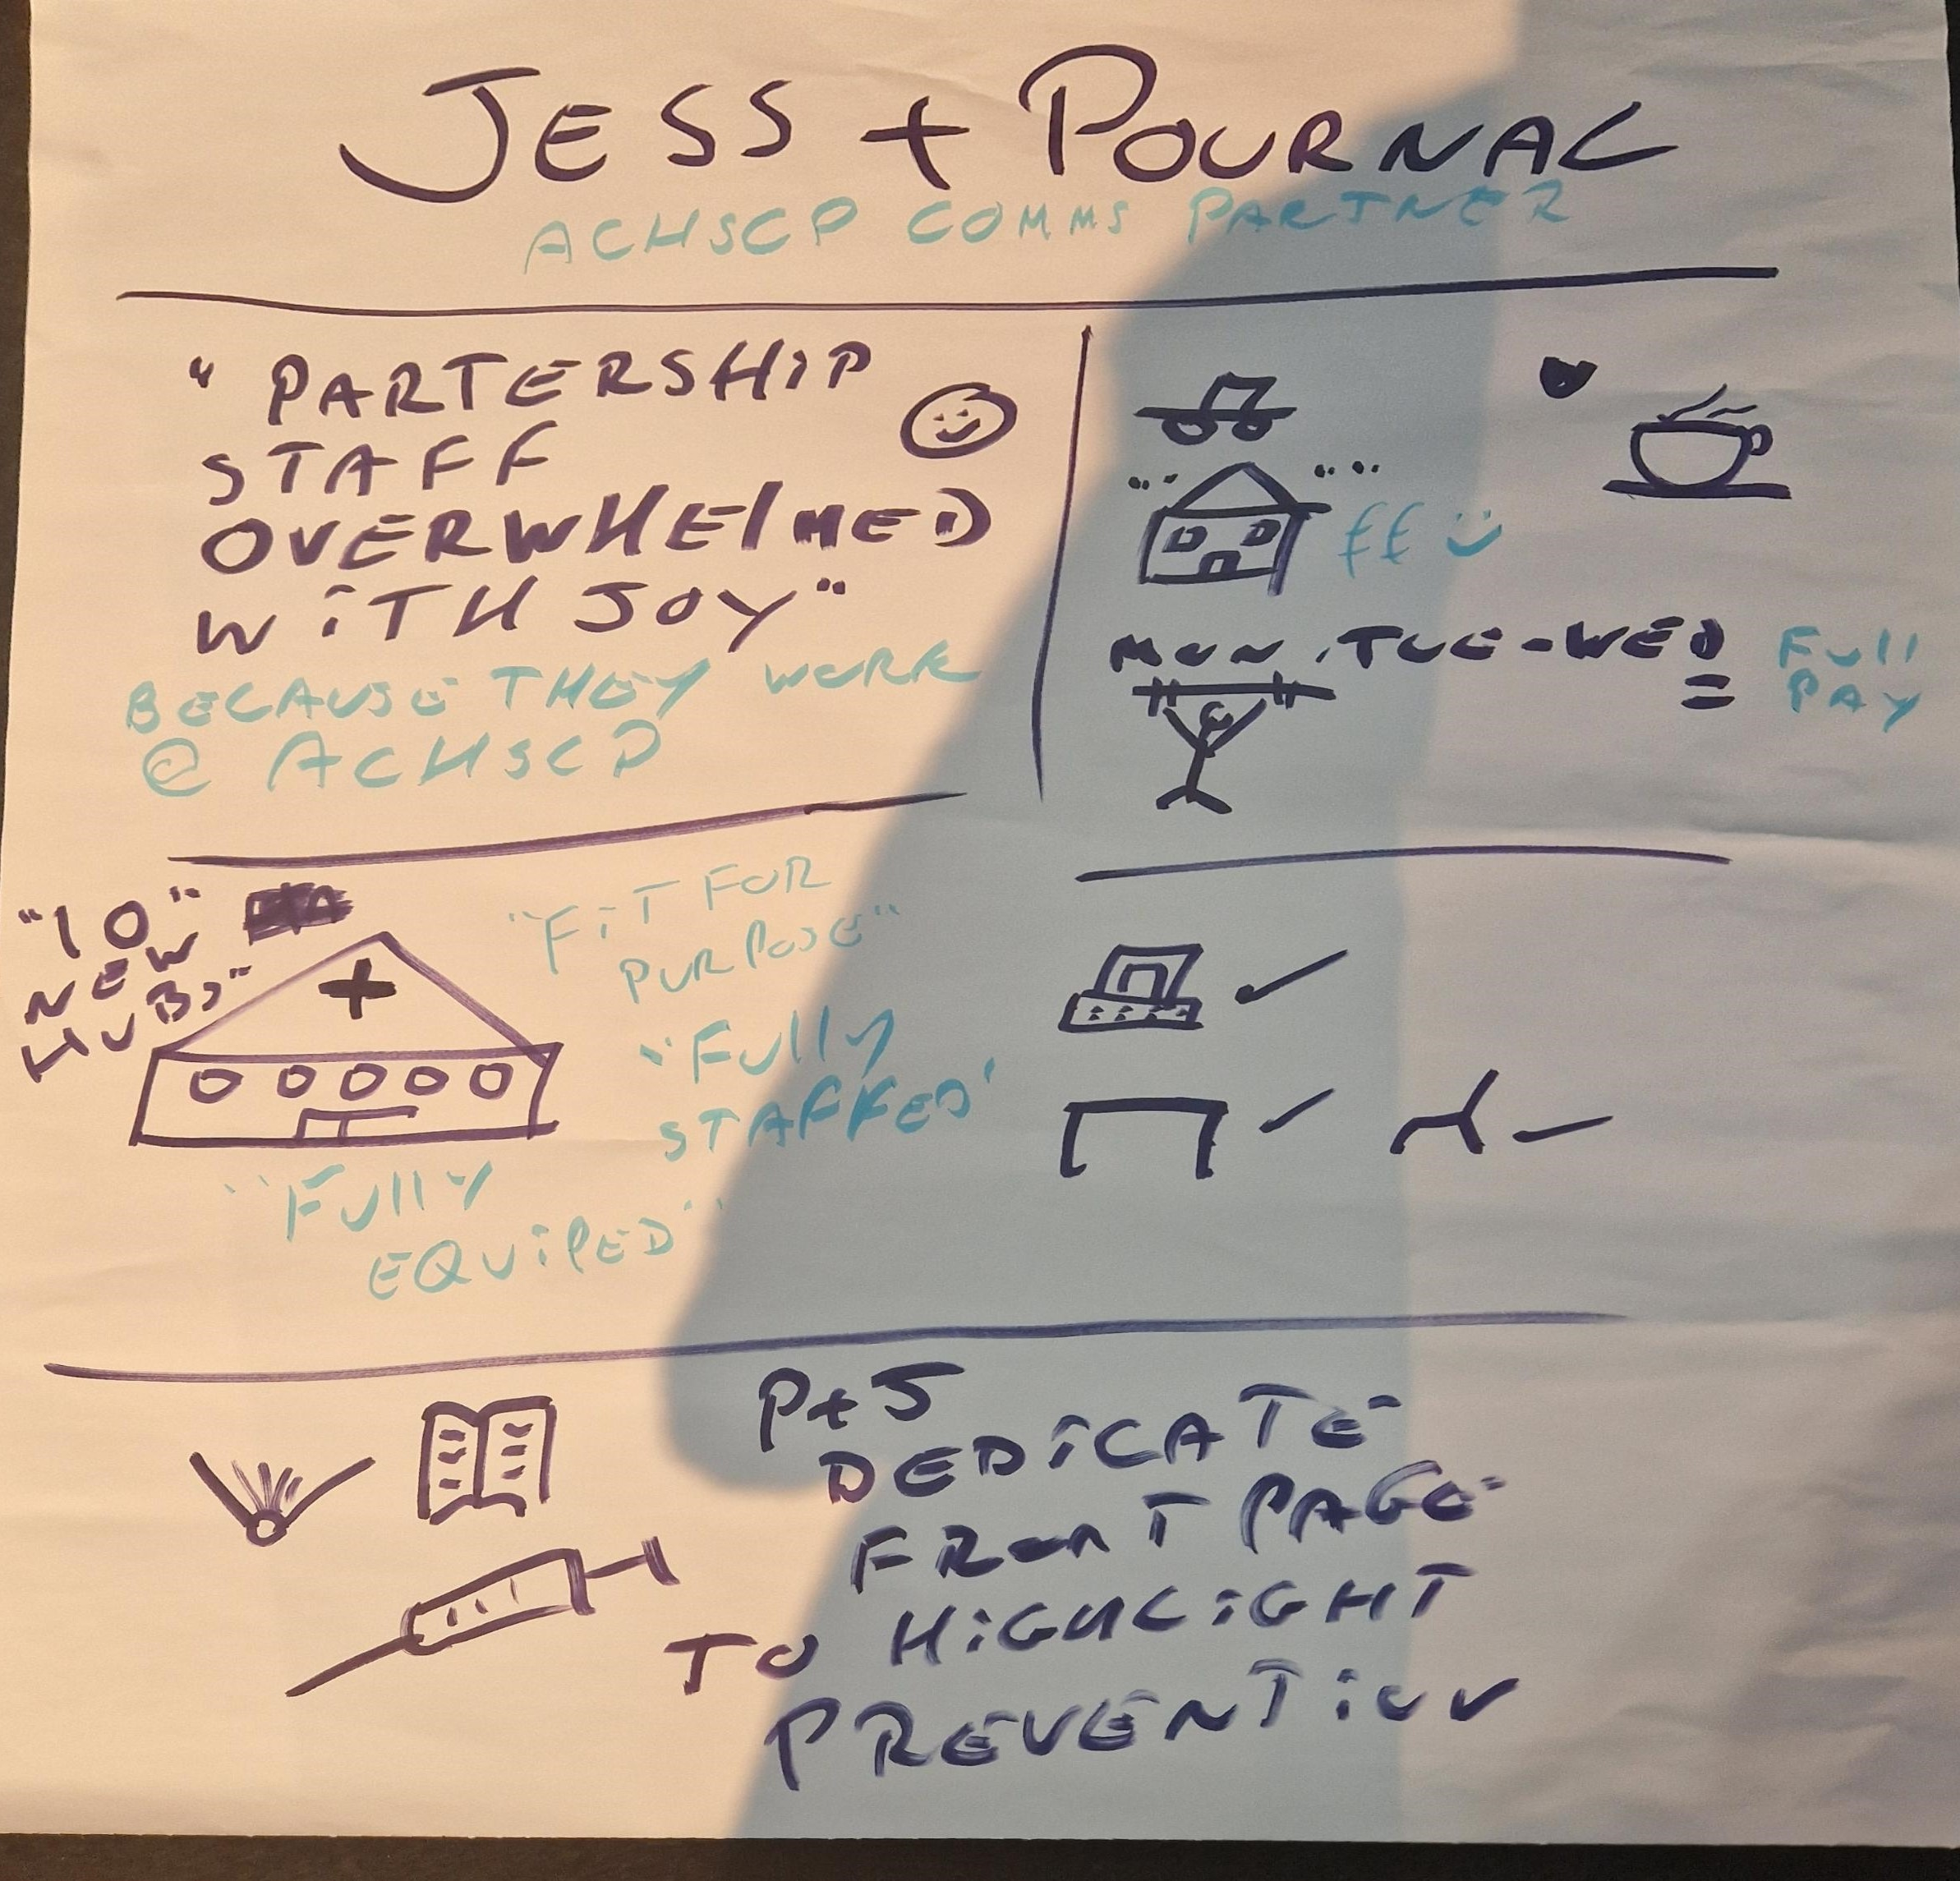 JESS + POURNAL
ACHSCP COMMS PARTNER
"PARTERSHIP
STAFF
OVERWHElMED
WiTH JOY"
BECAUSE THEY WORK
@ ACHSCP
££
MON, TUE-WED = Full
PAY
"10"
NEW
HUBS"
"FiT FOR
PURPOSE"
"Fully
STAFFED"
"Fully
EQUiPED"
P+J
DEDiCATE
FRONT PAGE
TO HiGHLiGHT
PREVENTiON